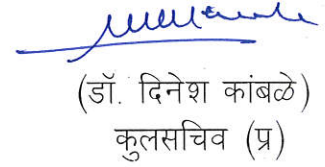 (डॉ. दिनेश कांबळे)
कुलसचिव (प्र)